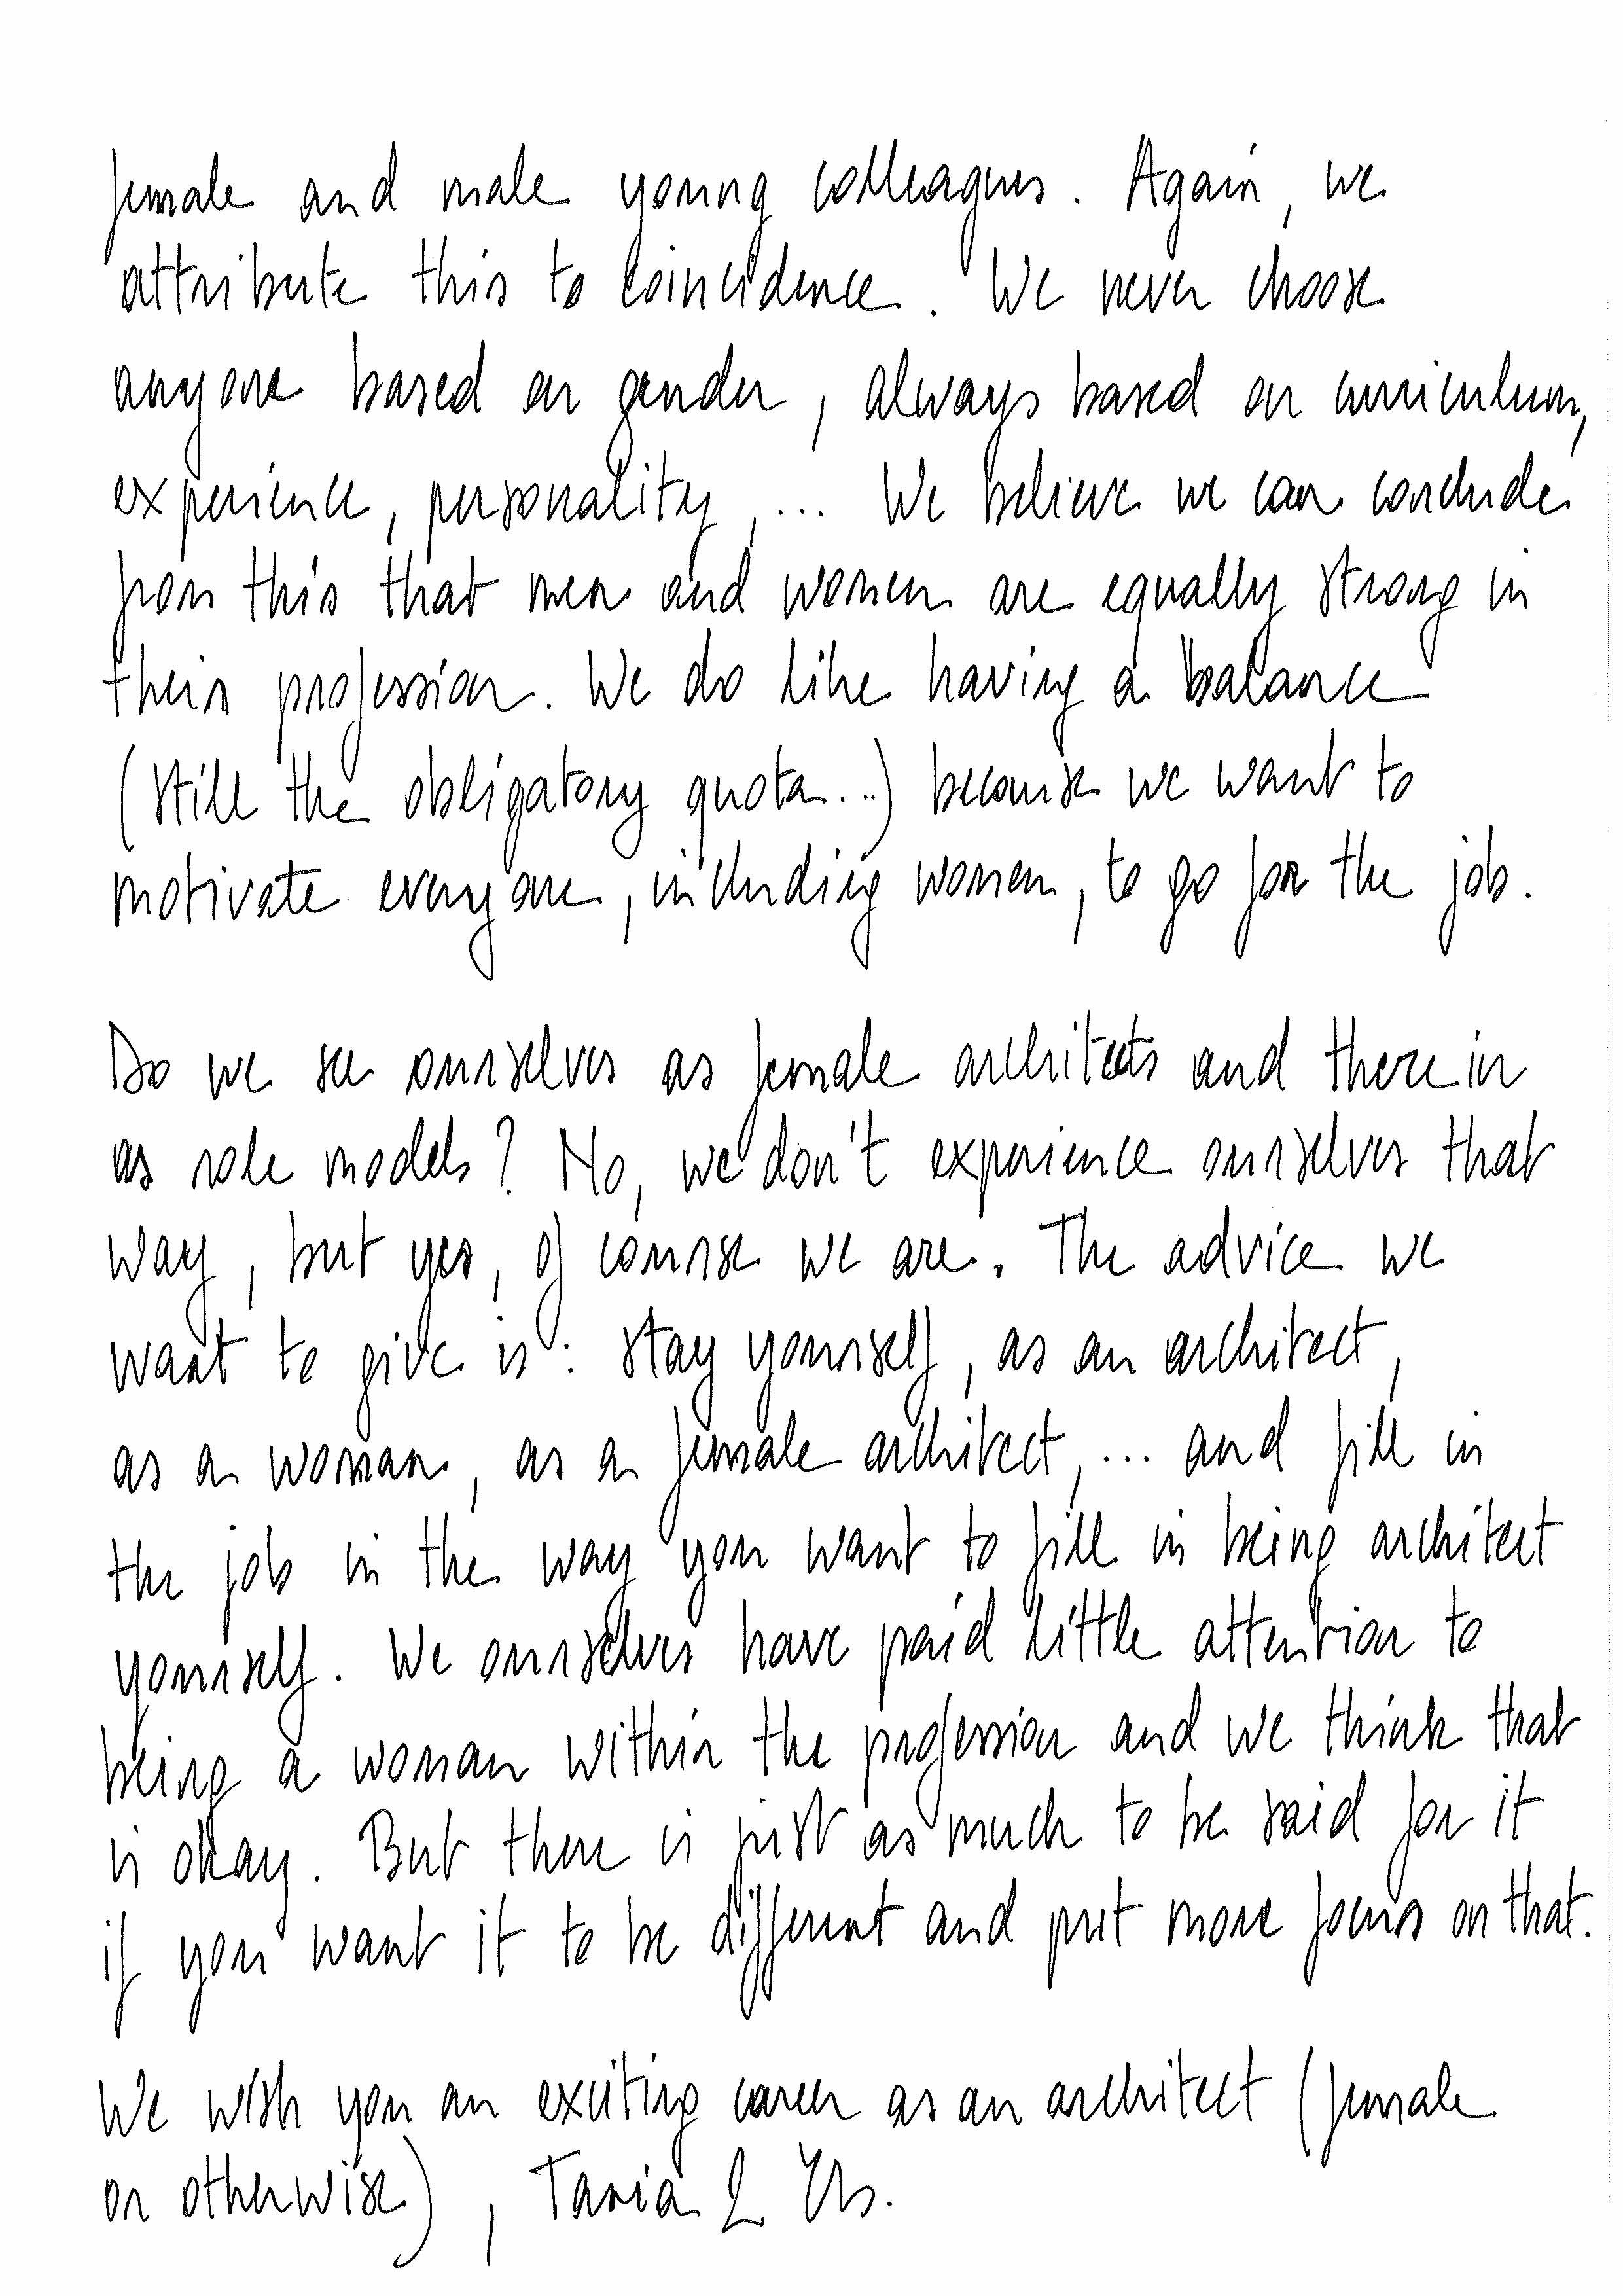 female and male young colleagues. Again, we
attribute this to coincidence. We never choose
anyone based on gender, always based on curriculum,
experience, personality, ... We believe we can conclude
from this that men and women are equally strong in
their profession. We do like having a balance
(still the obligatory quota...) because we want to
motivate everyone, including women, to go for the job.
Do we see ourselves as female architects and therein
as role models? No, we don't experience ourselves that
way, but yes, of course we are. The advice we
want to give is: stay yourself, as an architect,
as a woman, as a female architect, ... and fill in
the job in the way you want to fill in being architect
yourself. We ourselves have paid little attention to
being a woman within the profession and we think that
is okay. But there is just as much to be said for it
if you want it to be different and put more focus on that.
We wish you an exciting career as an architect (female
or otherwise), Tania &